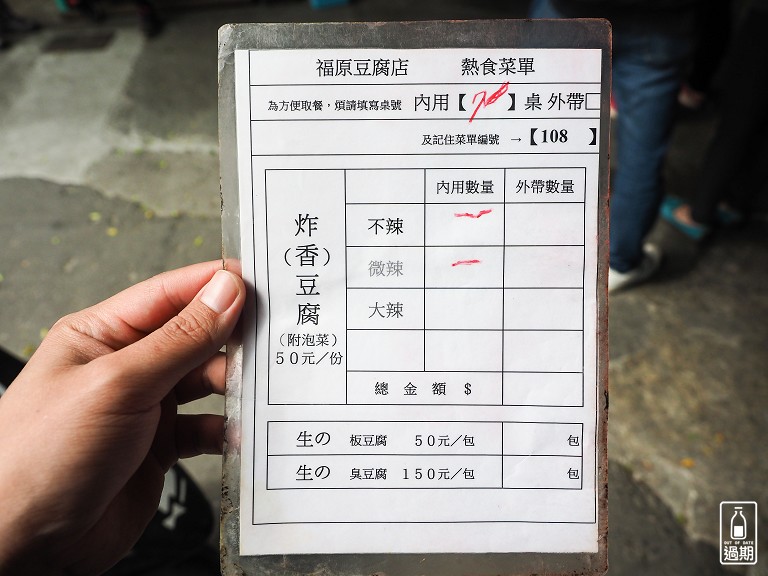 福原豆腐店 熱食菜單
為方便取餐，煩請填寫桌號 內用【 】桌 外帶□
及記住菜單編號 →【108 】
內用數量 外帶數量
炸（香）豆腐
（附泡菜）
５０元／份
不辣
微辣
大辣
總 金 額 $
生の 板豆腐 ５０元／包 包
生の 臭豆腐 １５０元／包 包
OUT OF DATE
過期